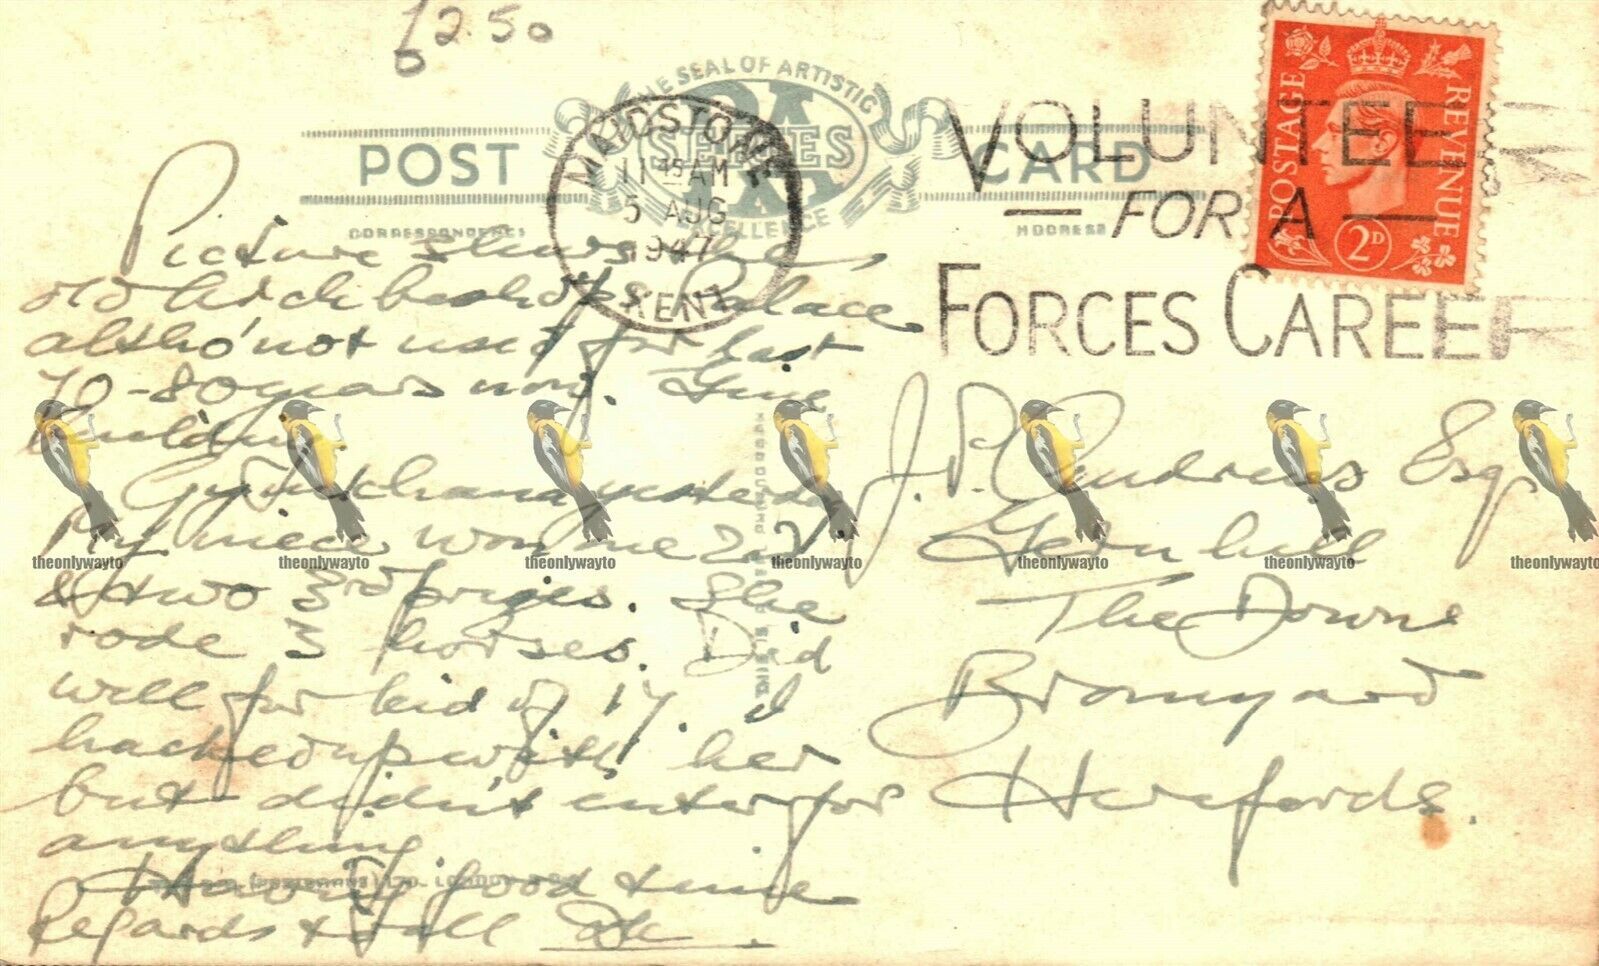 £2.50
THE SEAL OF ARTISTIC
SERIES
EXCELLENCE
POST CARD
CORRESPONDENCE
ADDRESS
MAIDSTONE
11 45 AM
5 AUG
1947
KENT
VOLUNTEE
FOR A
FORCES CAREER
POSTAGE
REVENUE
2D
Picture shows the
old Archbishops Palace
altho' not used for last
70-80 years now. Fine
building.
Gymkhana yesterday
My niece won one 2nd
& two 3rd prizes. She
rode 3 horses. Did
well for kid of 17. I
hacked up with her
but didn't enter for
anything
Having good time
Regards to all
J. P. Andrews Esq.
The Downs
Bromyard
Herefords.
theonlywayto theonlywayto theonlywayto theonlywayto theonlywayto theonlywayto theonlywayto